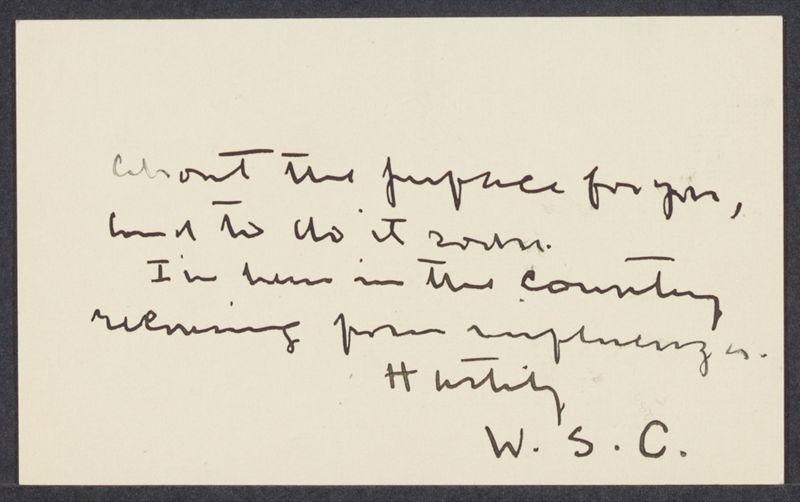 about the furnace for you,
and to do it soon.
I'm here in the country
recovering from influenza.
Hastily
W. S. C.